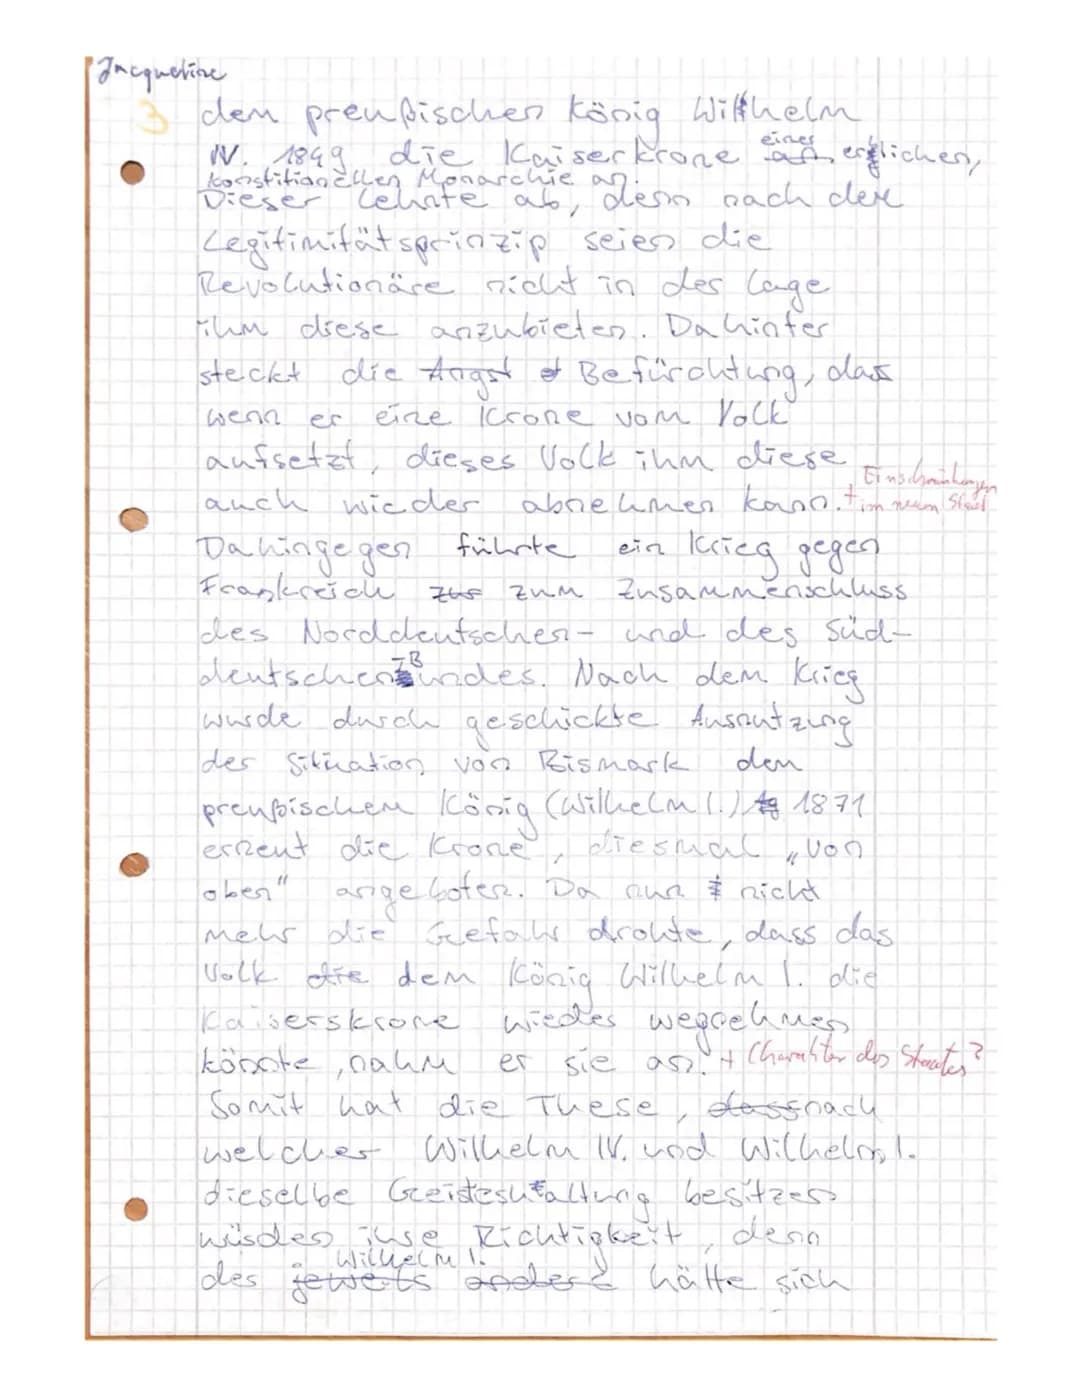 Jacqueline
3 dem preußischen König Wilhelm
IV. 1849 die Kaiserkrone einer erblichen,
konstitionellen Monarchie an.
Dieser lehnte ab, denn nach dem
Legitimitätsprinzip seien die
Revolutionäre nicht in der Lage
ihm diese anzubieten. Dahinter
steckt die Angst Befürchtung, dass
wenn er eine Krone vom Volk
aufsetzt, dieses Volk ihm diese
auch wieder abnehmen kann. + Einschränkungen
im neuen Staat
Dahingegen führte ein Krieg gegen
Frankreich zur zum Zusammenschluss
des Norddeutschen- und des Süd-
deutschen Bundes. Nach dem Krieg
wurde durch geschickte Ausnutzung
der Situation von Bismark dem
preußischem König (Wilhelm I.) 1871
erneut die Krone, diesmal „von
oben" angeboten. Da nun nicht
mehr die Gefahr drohte, dass das
Volk die dem König Wilhelm I. die
Kaiserskrone wieder wegnehmen
könnte, nahm er sie an. + Charakter des Staates?
Somit hat die These, dass nach
welcher Wilhelm IV. und Wilhelm I.
dieselbe Geisteshaltung besitzen
würden ihre Richtigkeit, denn
Wilhelm I.
der jeweils andere hätte sich